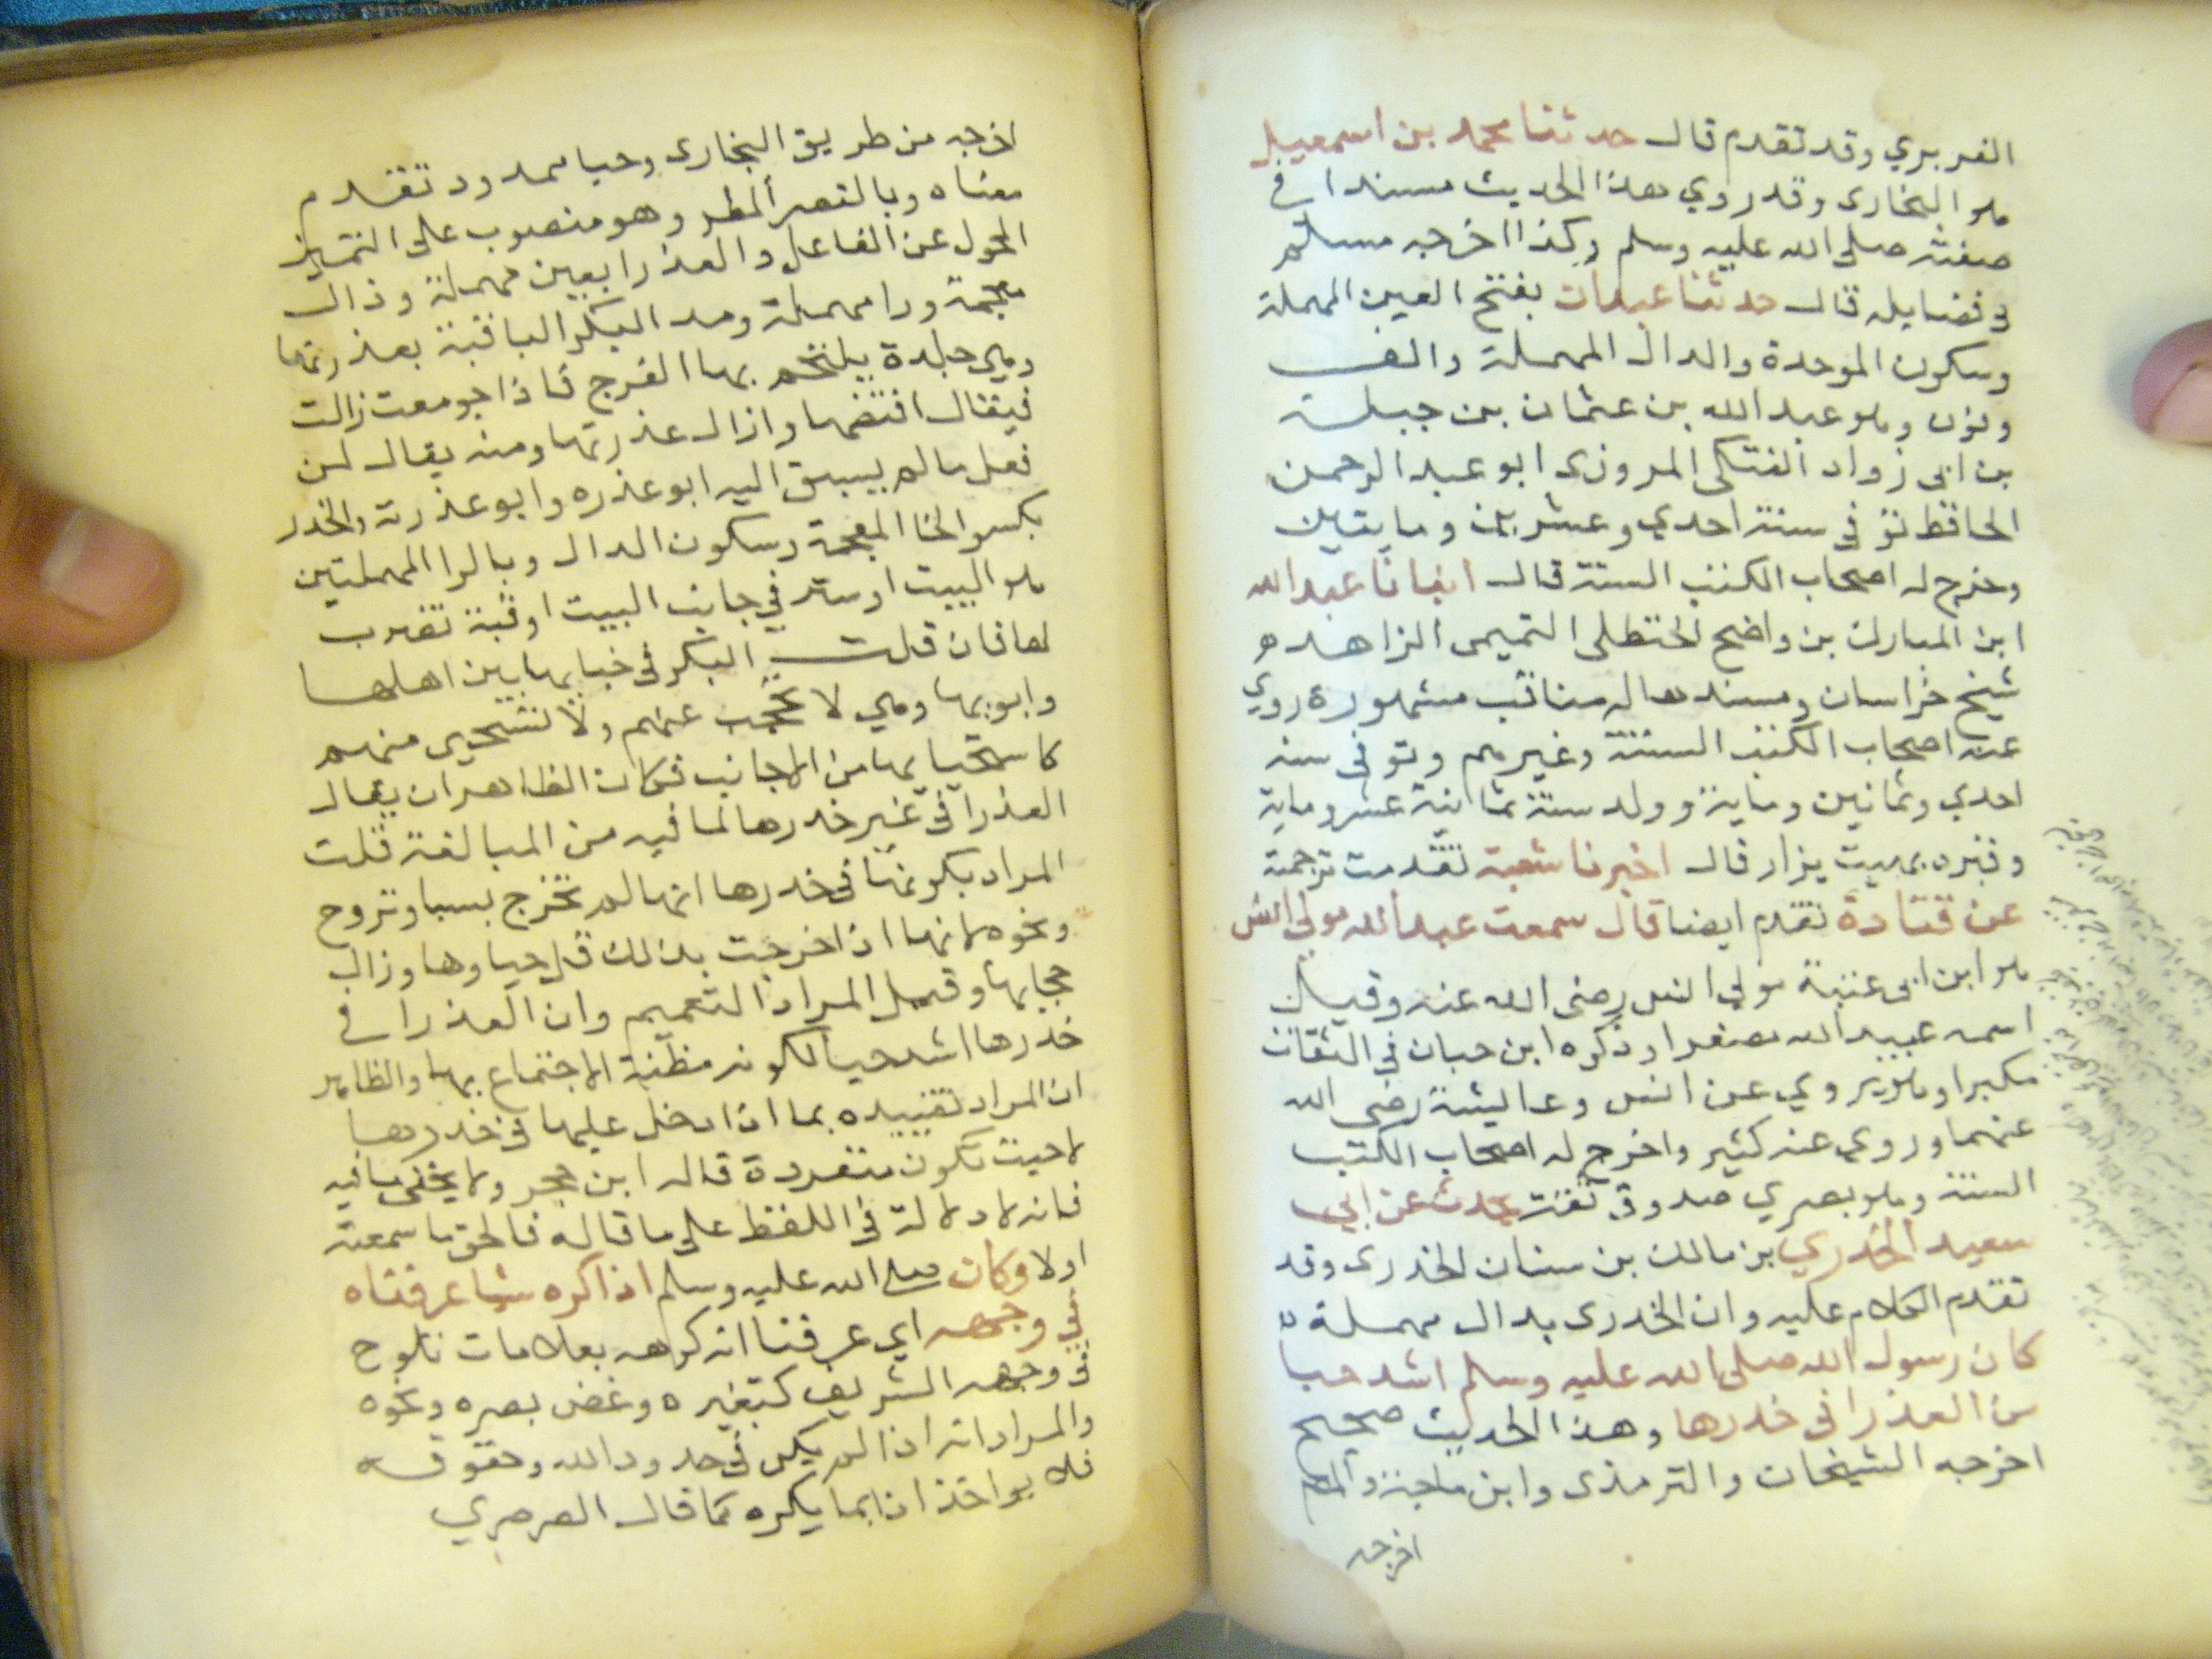 الفربري وقد تقدم قال حدثنا محمد بن اسمعيل
هو البخارى وقد روي هذا الحديث مسندا في
صفته صلى الله عليه وسلم وكذا اخرجه مسلم
في فضايله قال حدثنا عبدان بفتح العين المهملة
وسكون الموحدة والدال المهملة والف
ونون وهو عبد الله بن عثمان بن جبلة
بن ابى زواد الفتكى المروزى ابو عبد الرحمن
الحافظ توفي سنة احدي وعشرين ومايتين
وخرج له اصحاب الكتب الستة قال انبانا عبد الله
ابن المبارك بن واضح الحنظلى التميمى الزاهد
شيخ خراسان ومسندها له مناقب مشهورة روي
عنه اصحاب الكتب الستة وغيرهم وتوفى سنه
احدي وثمانين وماية وولد سنة ثمانية عشر وماية
وقبره بهيت يزار قال اخبرنا شعبة تقدمت ترجمته
عن قتادة تقدم ايضا قال سمعت عبد الله مولى انس
هو ابن ابى عتبة مولي انس رضى الله عنه وقيل
اسمه عبيد الله مصغرا وذكره ابن حبان في الثقات
مكبرا وهو يروي عن انس وعايشة رضى الله
عنهما وروي عنه كثير واخرج له اصحاب الكتب
الستة وهو بصري صدوق ثقة يحدث عن ابي
سعيد الخدري بن مالك بن سنان الخدرى وقد
تقدم الكلام عليه وان الخدرى بدال مهملة
كان رسول الله صلى الله عليه وسلم اشد حيا
من العذرا فى خدرها وهذا الحديث صحيح
اخرجه الشيخان والترمذى وابن ماجة والمص
اخرجه
اخرجه من طريق البخارى وحيا ممدود تقدم
معناه وبالقصر المطر وهو منصوب على التمييز
المحول عن الفاعل والعذرا بعين مهملة وذال
معجمة ورا مهملة ومد البكر الباقية بعذرتها
وهي جلدة يلتحم بها الفرج فاذا جومعت زالت
فيقال افتضها وازال عذرتها ومنه يقال لمن
فعل مالم يسبق اليه ابو عذره وابو عذرته والخدر
بكسر الخا المعجمة وسكون الدال وبالرا المهملتين
هو البيت او ستر في جانب البيت او قبة تضرب
لها فان قلت البكر فى خبايها بين اهلها
وابويها وهي لا تحجب عنهم ولا تستحيى منهم
كاستحيايها من الاجانب فكان الظاهر ان يقال
العذرا في غير خدرها لما فيه من المبالغة قلت
المراد بكونها فى خدرها انها لم تخرج بسبا وتزوج
ونحوه لانها اذا خرجت بذلك قل حياوها وزال
حجابها وقيل المراد التعميم وان العذرا في
خدرها اشد حيا لكونه مظنة الاجتماع بها والظاهر
ان المراد تقييده بما اذا دخل عليها فى خدرها
لا حيث تكون منفردة قاله ابن حجر ولا يخفى مافيه
فانه لا دلالة فى اللفظ على ما قاله فالحق ما سمعته
اولا وكان صلى الله عليه وسلم اذا كره شيا عرفناه
في وجهه اي عرفنا انه كرهه بعلامات تلوح
في وجهه الشريف كتغيره وغض بصره ونحوه
والمراد انه اذا لم يكن فى حدود الله وحقوقه
فلا يواخذ اذا بما يكره كما قال الصرصري